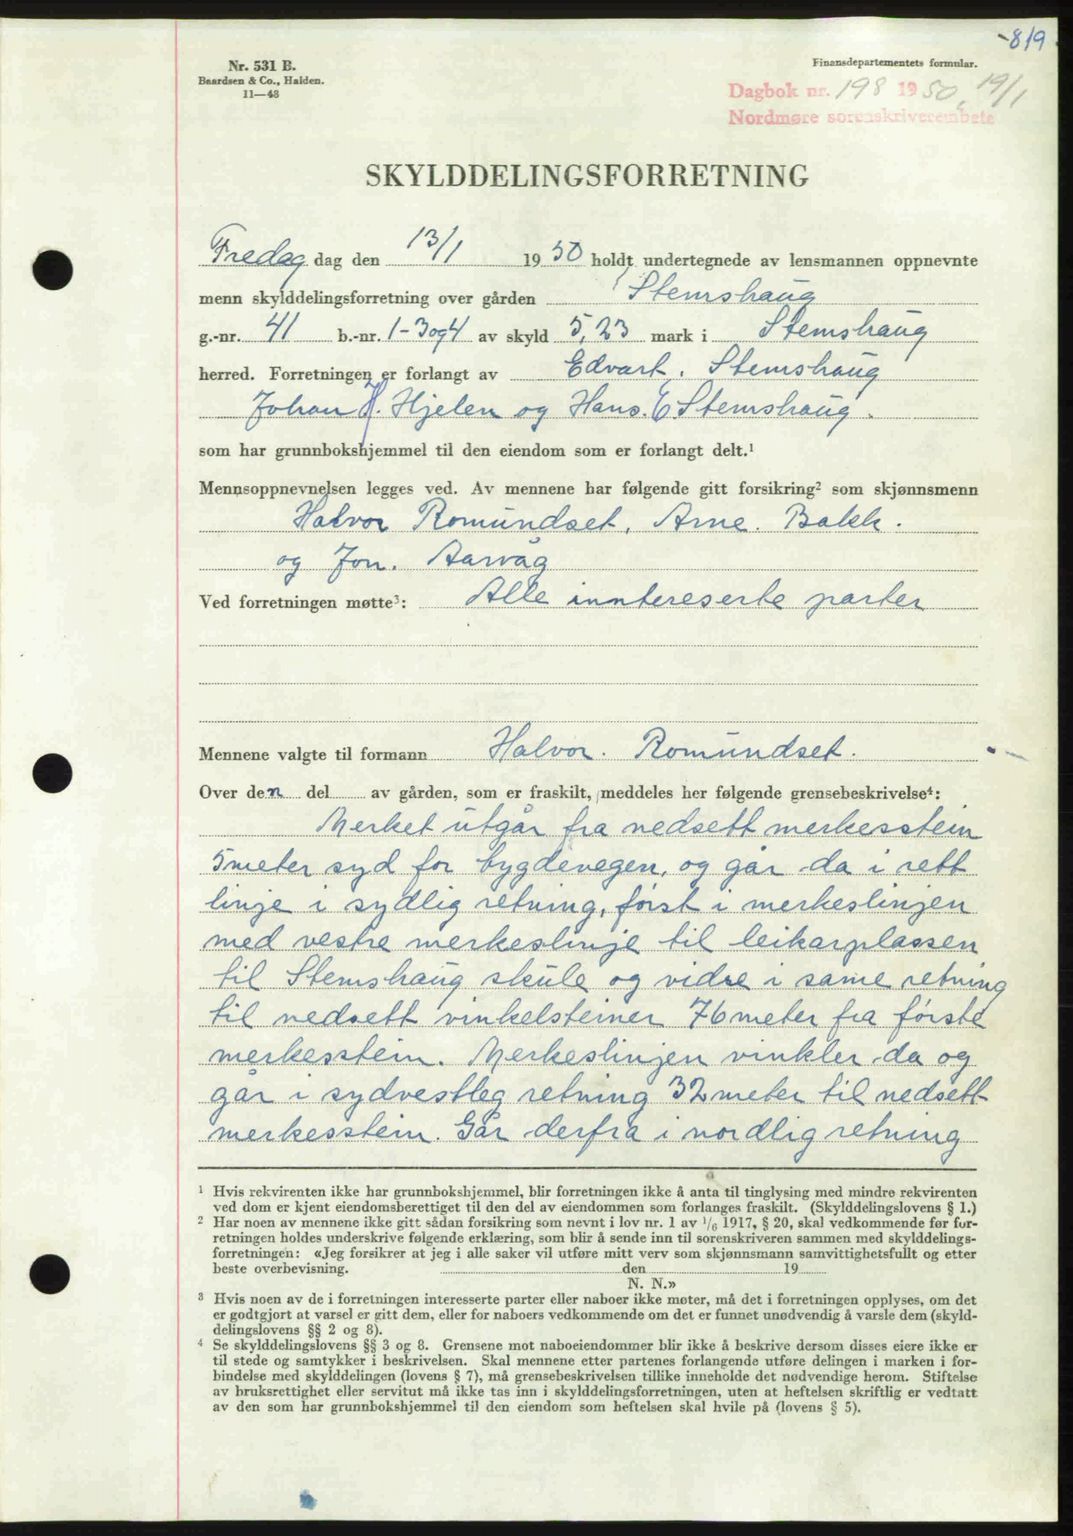 -819
Nr. 531 B.
Baardsen & Co., Halden.
11—43
Finansdepartementets formular.
Dagbok nr. 198 1950, 19/1
Nordmøre sorenskriverembete
SKYLDDELINGSFORRETNING
Fredag dag den 13/1 1950 holdt undertegnede av lensmannen oppnevnte
menn skylddelingsforretning over gården Stemshaug
g.-nr. 41 b.-nr. 1-3og4 av skyld 5,23 mark i Stemshaug
herred. Forretningen er forlangt av Edvart. Stemshaug
Johan H. Hjelen og Hans. E Stemshaug.
som har grunnbokshjemmel til den eiendom som er forlangt delt.¹
Mennsoppnevnelsen legges ved. Av mennene har følgende gitt forsikring² som skjønnsmenn
Halvor Romundset, Arne. Bakk.
og Jon. Aarvåg
Ved forretningen møtte³: Alle inntereserte parter
Mennene valgte til formann Halvor. Romundset.
Over den del av gården, som er fraskilt, meddeles her følgende grensebeskrivelse⁴:
Merket utgår fra nedsett merkesstein
5 meter syd for bygdevegen, og går da i rett
linje i sydlig retning, først i merkeslinjen
med vestre merkeslinje til leikarplassen
til Stemshaug skule og vidre i same retning
til nedsett vinkelsteiner 76 meter fra første
merkesstein. Merkeslinjen vinkler da og
går i sydvestleg retning 32 meter til nedsett
merkesstein. Går derfra i nordlig retning
¹ Hvis rekvirenten ikke har grunnbokshjemmel, blir forretningen ikke å anta til tinglysing med mindre rekvirenten
ved dom er kjent eiendomsberettiget til den del av eiendommen som forlanges fraskilt. (Skylddelingslovens § 1.)
² Har noen av mennene ikke gitt sådan forsikring som nevnt i lov nr. 1 av 1/6 1917, § 20, skal vedkommende før for-
retningen holdes underskrive følgende erklæring, som blir å sende inn til sorenskriveren sammen med skylddelings-
forretningen: «Jeg forsikrer at jeg i alle saker vil utføre mitt verv som skjønnsmann samvittighetsfullt og etter
beste overbevisning. den 19
N. N.»
³ Hvis noen av de i forretningen interesserte parter eller naboer ikke møter, må det i forretningen opplyses, om det
er godtgjort at varsel er gitt dem, eller for naboers vedkommende om det er funnet unødvendig å varsle dem (skyld-
delingslovens §§ 2 og 8).
⁴ Se skylddelingslovens §§ 3 og 8. Grensene mot naboeiendommer blir ikke å beskrive dersom disses eiere ikke er
til stede og samtykker i beskrivelsen. Skal mennene etter partenes forlangende utføre delingen i marken i for-
bindelse med skylddelingen (lovens § 7), må grensebeskrivelsen tillike inneholde det nødvendige herom. Stiftelse
av bruksrettighet eller servitut må ikke tas inn i skylddelingsforretningen, uten at heftelsen skriftlig er vedtatt
av den som har grunnbokshjemmel til den eiendom som heftelsen skal hvile på (lovens § 5).